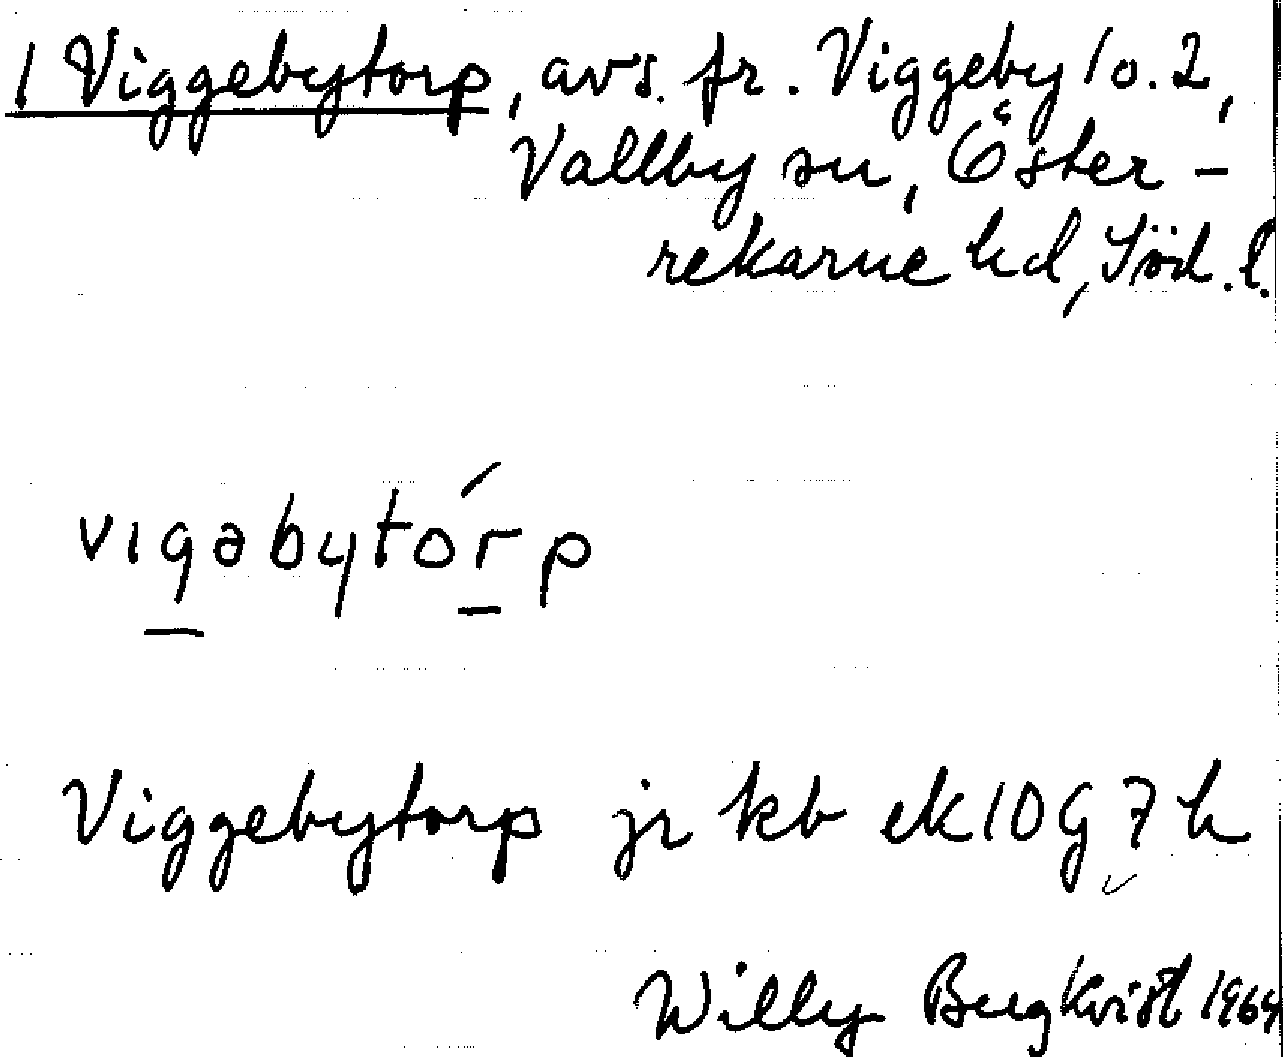 1 Viggebytorp, avs. fr. Viggeby 1 o. 2,
Vallby sn, Öster-
rekarne hd, Söd. l.
vıgəbytórp
Viggebytorp jr kb ek 10 G 7 h
Willy Bergkvist 1964